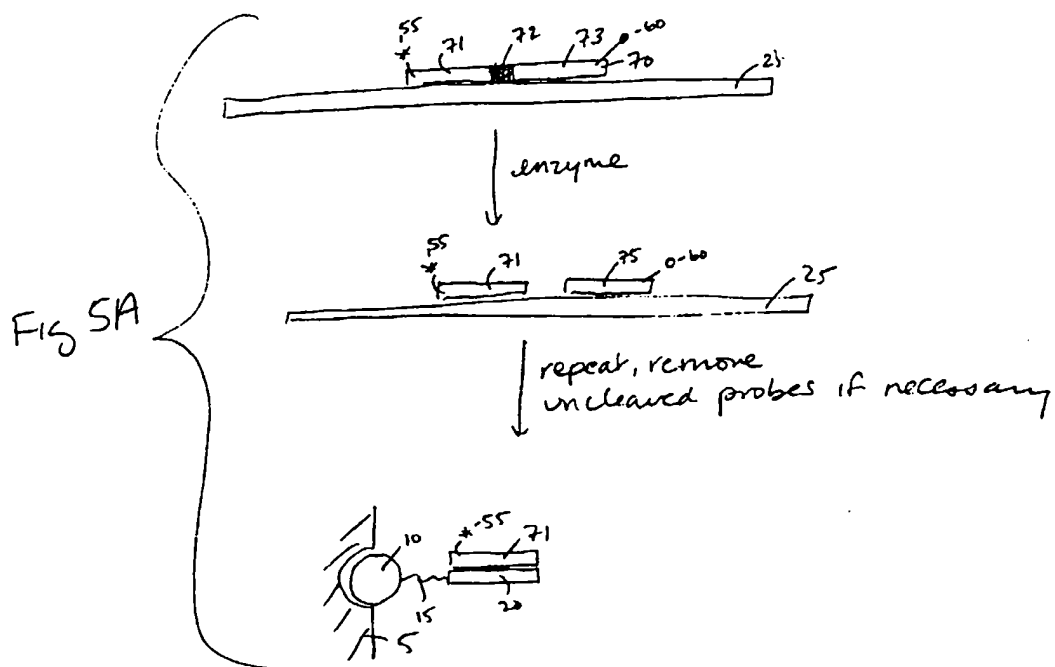 *55 71 72 73 •-60 70 25
enzyme
*55 71 75 o-60 25
Fig 5A
repeat, remove
uncleaved probes if necessary
10 *-55 71
15 20
5